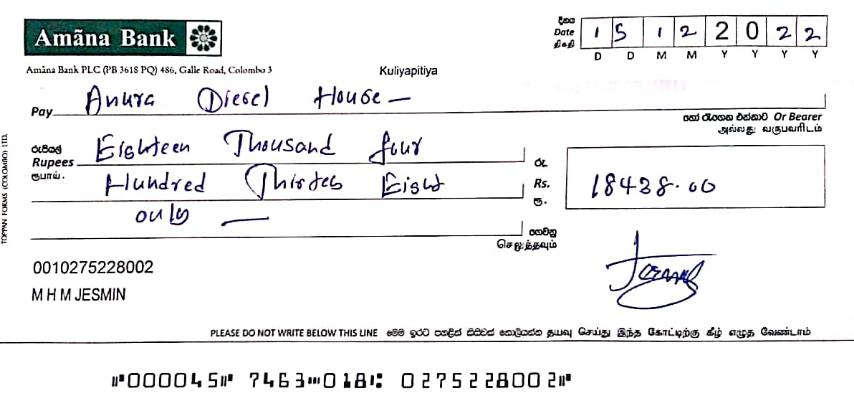 Amãna Bank
දිනය
Date
திகதி
1 5 1 2 2 0 2 2
D D M M Y Y Y Y
Amãna Bank PLC (PB 3618 PQ) 486, Galle Road, Colombo 3
Kuliyapitiya
Pay Anura Diesel House —
හෝ රැගෙන එන්නාට Or Bearer
அல்லது வருபவரிடம்
රුපියල්
Rupees Eighteen Thousand four
ரூபாய்.
Hundred Thirteb Eight
only —
රු.
Rs. 18438.00
ரூ.
ගෙවනු
செலுத்தவும்
TOPPAN FORMS (COLOMBO) LTD.
0010275228002
M H M JESMIN
PLEASE DO NOT WRITE BELOW THIS LINE මෙම ඉරට පහළින් කිසිවක් නොලියන්න தயவு செய்து இந்த கோட்டிற்கு கீழ் எழுத வேண்டாம்
⑈000045⑈ 7463⑉018⑆ 0275228002⑈